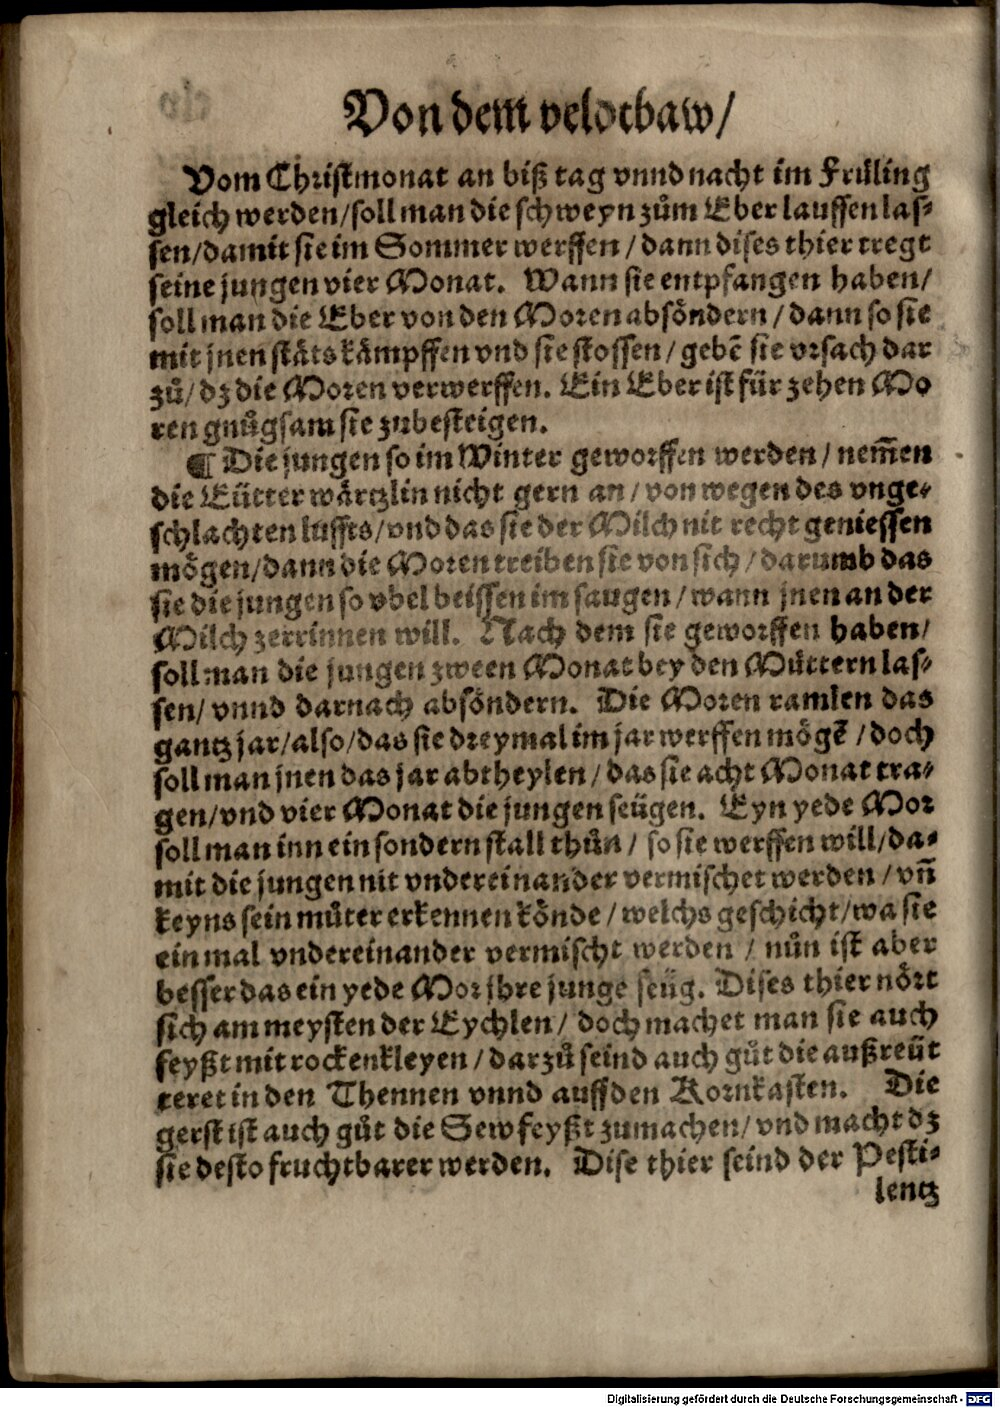 Von dem veldtbaw/
Vom Christmonat an biß tag vnnd nacht im Früling
gleich werden/soll man die schweyn zům Eber lauffen las-
sen/damit sie im Sommer werffen/dann dises thier tregt
seine jungen vier Monat. Wann sie entpfangen haben/
soll man die Eber von den Moren absöndern/dann so sie
mit jnen stäts kämpffen vnd sie stossen/gebẽ sie vrsach dar
zů/dz die Moren verwerffen. Ein Eber ist für zehen Mo
ren gnůgsam sie zubesteigen.
¶ Die jungen so im Winter geworffen werden/nem̃en
die Eütter wärtzlin nicht gern an/von wegen des vnge-
schlachten luffts/vnd das sie der Milch nit recht geniessen
mögen/dann die Moren treiben sie von sich/darumb das
sie die jungen so vbel beissen im saugen/wann jnen an der
Milch zerrinnen will. Nach dem sie geworffen haben/
soll man die jungen zween Monat bey den Müttern las-
sen/vnnd darnach absöndern. Die Moren ramlen das
gantz jar/also/das sie dreymal im jar werffen mögẽ/doch
soll man jnen das jar abtheylen/das sie acht Monat tra-
gen/vnd vier Monat die jungen seügen. Eyn yede Mor
soll man inn ein sondern stall thůn/so sie werffen will/da-
mit die jungen nit vndereinander vermischet werden/vñ
keyns sein můter erkennen könde/welchs geschicht/wa sie
ein mal vndereinander vermischt werden/nůn ist aber
besser das ein yede Mor jhre junge seüg. Dises thier nört
sich am meysten der Eychlen/doch machet man sie auch
feyßt mit rockenkleyen/darzů seind auch gůt die außreüt
teret in den Thennen vnnd auff den Kornkasten. Die
gerst ist auch gůt die Sew feyßt zumachen/vnd macht dz
sie desto fruchtbarer werden. Dise thier seind der Pesti-
lentz
Digitalisierung gefördert durch die Deutsche Forschungsgemeinschaft - DFG